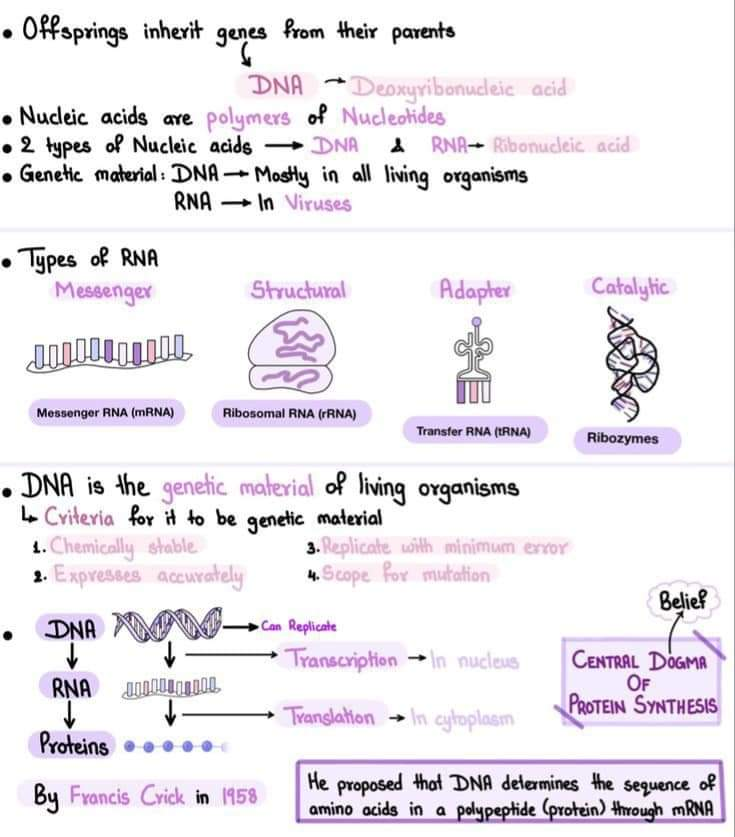 • Offsprings inherit genes from their parents
DNA → Deoxyribonucleic acid
• Nucleic acids are polymers of Nucleotides
• 2 types of Nucleic acids → DNA & RNA → Ribonucleic acid
• Genetic material: DNA → Mostly in all living organisms
RNA → In Viruses
• Types of RNA
Messenger Structural Adapter Catalytic
Messenger RNA (mRNA) Ribosomal RNA (rRNA) Transfer RNA (tRNA) Ribozymes
• DNA is the genetic material of living organisms
↳ Criteria for it to be genetic material
1. Chemically stable 3. Replicate with minimum error
2. Expresses accurately 4. Scope for mutation
Belief
• DNA → Can Replicate
Transcription → In nucleus
RNA
Translation → In cytoplasm
Proteins
CENTRAL DOGMA
OF
PROTEIN SYNTHESIS
By Francis Crick in 1958
He proposed that DNA determines the sequence of
amino acids in a polypeptide (protein) through mRNA